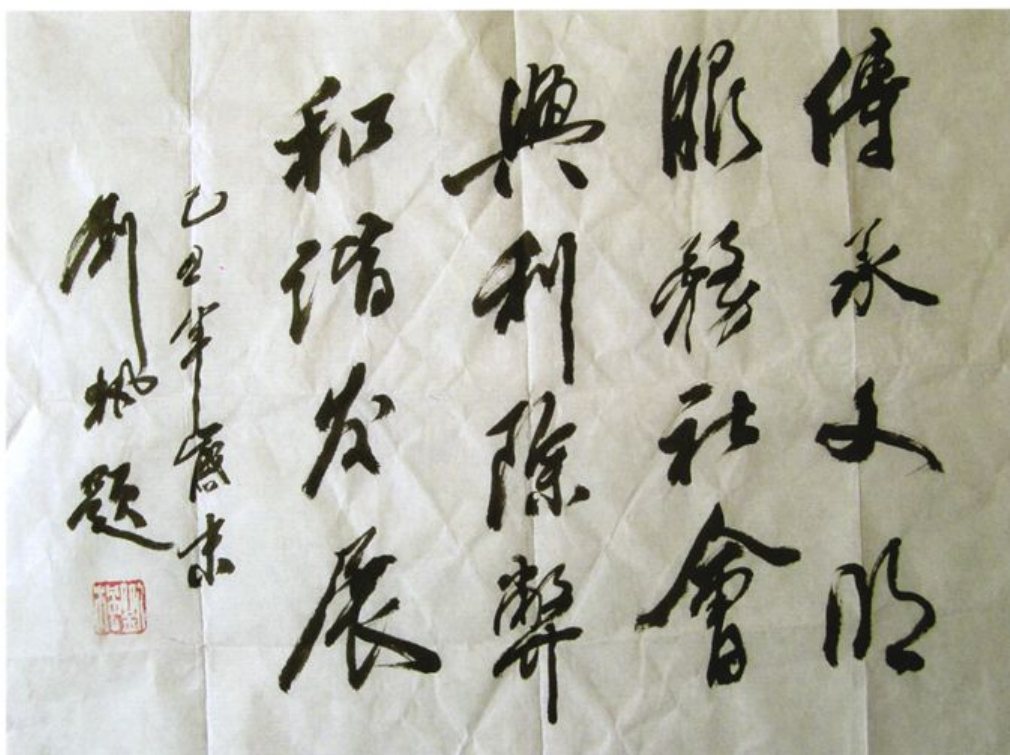 傳承文明
服務社會
興利除弊
和諧发展
己丑年歲末
劉楓題